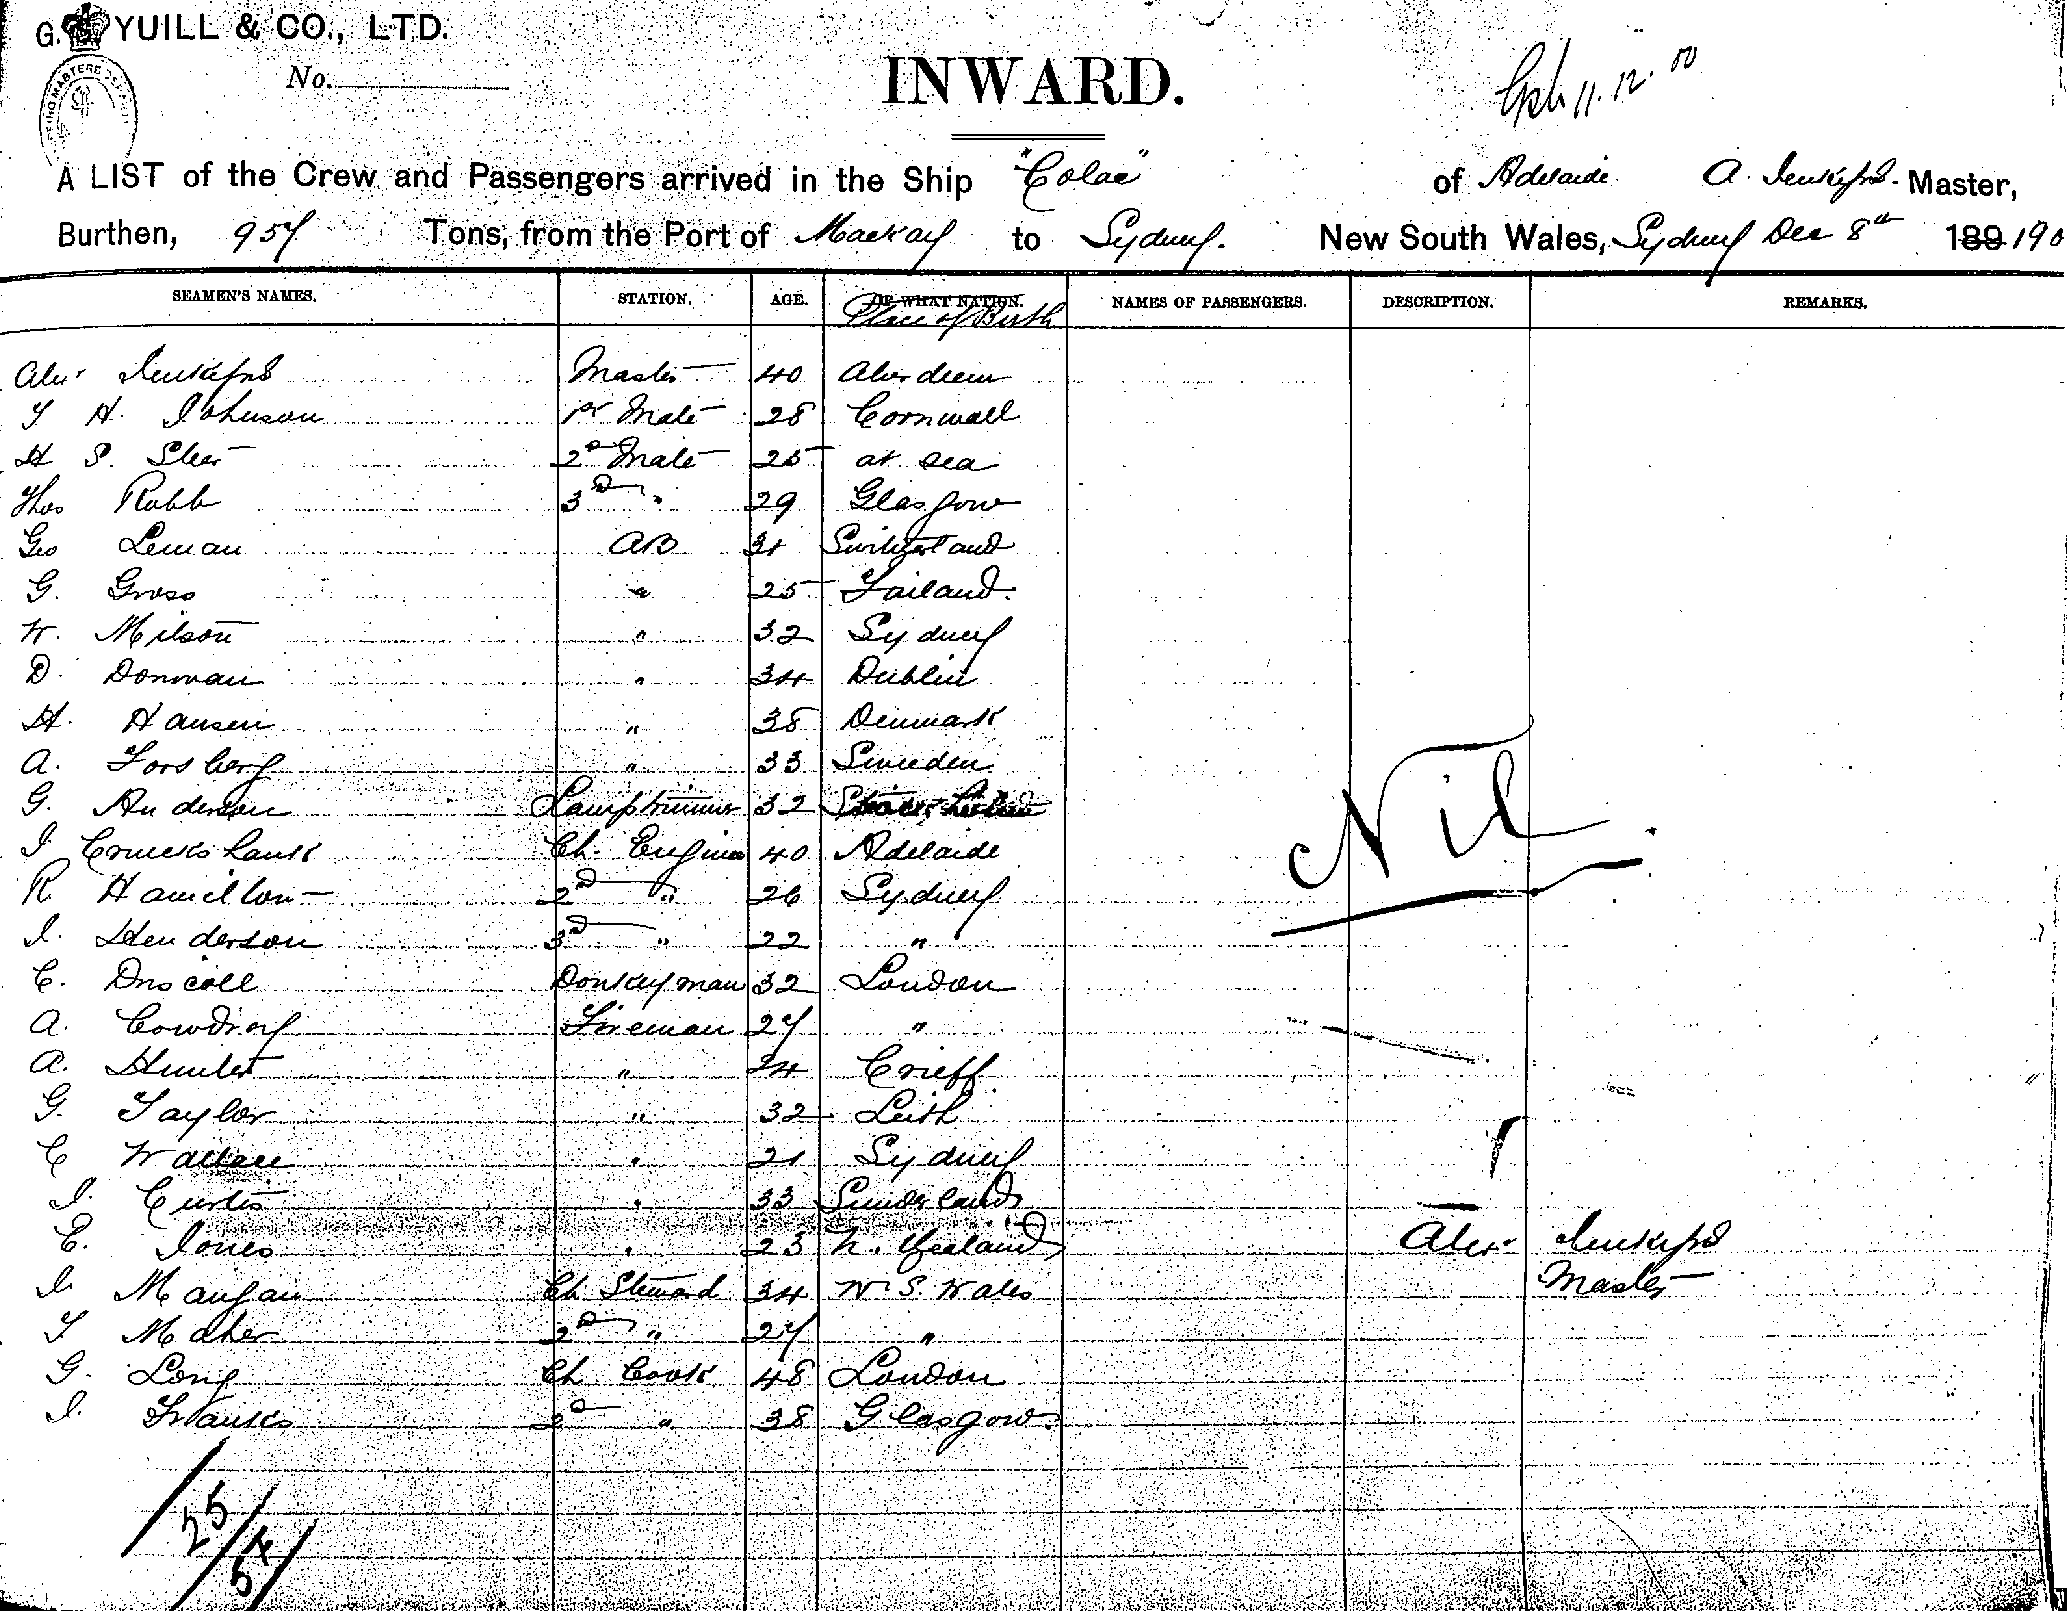 G. S. YUILL & CO., LTD.
No.
INWARD.
11.12.00
A LIST of the Crew and Passengers arrived in the Ship "Colac" of Adelaide A. Master,
Burthen, 957 Tons, from the Port of Mackay to Sydney. New South Wales, Sydney Dec 8th 189 190
SEAMEN'S NAMES. STATION. AGE. OF WHAT NATION. NAMES OF PASSENGERS. DESCRIPTION. REMARKS.
Place of Birth
Alexr Master 40 Aberdeen
T H. Johnson 1st Mate 28 Cornwall
H S. Sleer 2nd Mate 25 at sea
Thos Robb 3rd " 29 Glasgow
Geo Leman AB 31 Switzerland
G. Gross " 25
W. Milson " 32 Sydney
D. Donovan " 34 Dublin
H. Hansen " 38 Denmark
A. Forsberg " 33 Sweeden
G. Anderson Lamptrimmer 32
J Cruickshank Ch. Engineer 40 Adelaide
R Hamilton 2nd " 26 Sydney
J. Henderson 3rd " 22 "
C. Driscoll Donkeyman 32 London
A. Cowdroy Fireman 27 "
A. Hunter " 24 Crieff
G. Taylor " 32 Leith
C Wallace " 21 Sydney
J. Curtis " 33 Sunderland
C. Jones " 23 N. Zealand
J. Mangan Ch Steward 34 N. S. Wales
T Maher 2nd " 27 "
G. Long Ch Cook 48 London
J. Franks 2nd " 38 Glasgow.
Nil.
Alexr
Master
25
4
5